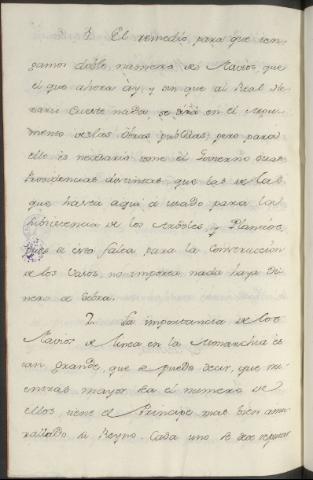 El remedio, para que ten-
gamos doble numero de Navios, que
el que ahora áy, y sin que al Real He-
rario cueste nada, se
mento de las obras publicas; pero para
ello es necesario tome el Govierno otras
Providencias distintas, que las de las
que hasta aqui á usado para la
subsistencia de los Arboles, y Plantios,
pues si esto falta para la Construccion
de los Vasos, no importa nada haya Di-
nero de sobra.
2. La importancia de los
Navios de linea en la Monarchia es
tan grande, que se puede decir, que mi-
entras mayor sea el numero de
ellos, tiene el Principe mas bien amu-
rallado su Reyno. Cada uno se deve reputar